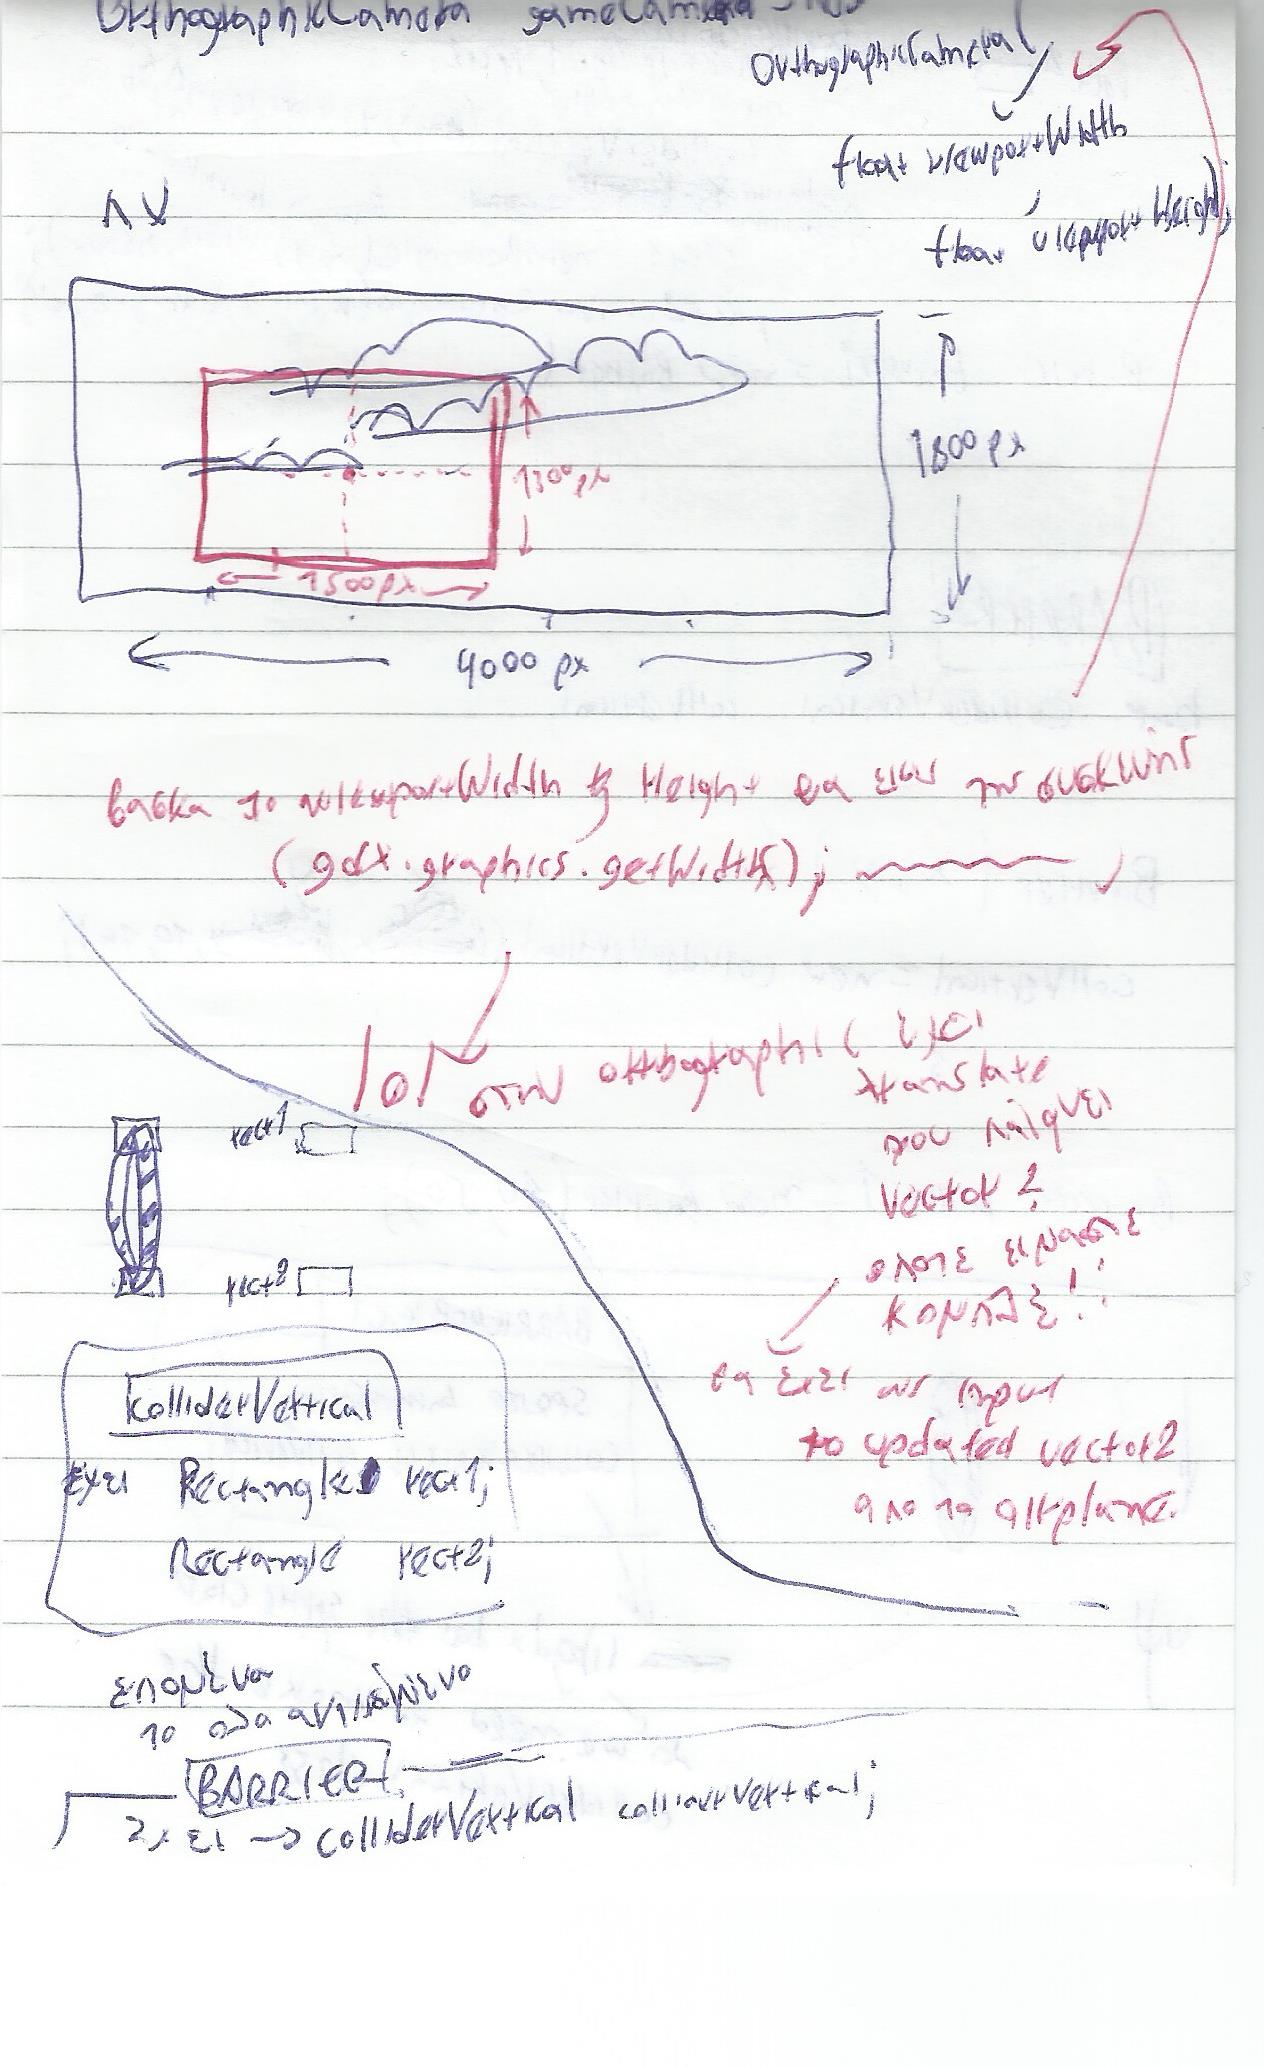 OrthographicCamera gameCamera
OrthographicCamera(
float viewportWidth
,
float viewportHeight);
π χ
1800px
1300px
1500px
4000 px
βασικα το viewportWidth & Height θα ειναι της συσκευης
(gdx.graphics.getWidth);
lol
στην orthographic εχει
translate
που παιρνει
vector2
οποτε ειμαστε
κομπλε!!
θα εχει ως input
το updated vector2
απο το airplane.
rect1
rect2
ColliderVertical
εχει Rectangle rect1;
Rectangle rect2;
επομενα
το αλλο αντικειμενο
BARRIER
εχει → ColliderVertical colliderVertical;